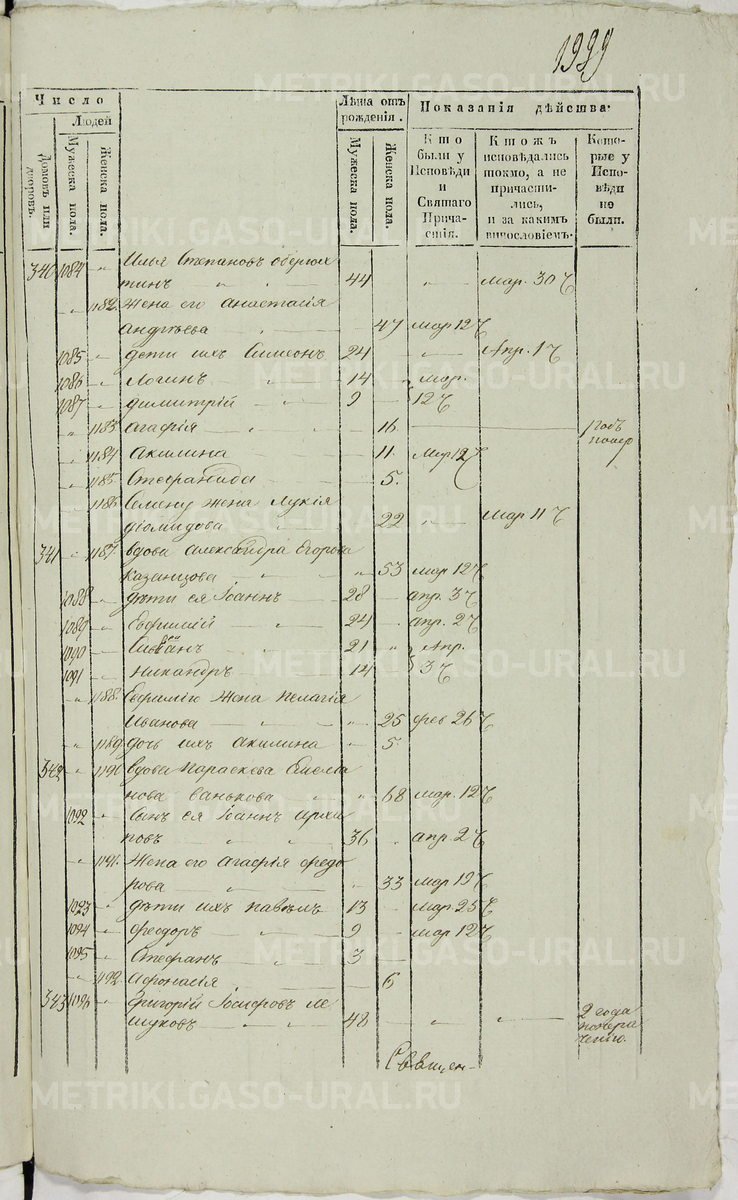 1999
Число
Людей
Домовъ или дворовъ.
Мужеска пола.
Женска пола.
Лѣта отъ рожденія.
Мужеска пола.
Женска пола.
Показанія дѣйства.
Кто были у Исповѣди и Святаго Причастія.
Кто жъ исповѣдались токмо, а не причастились, и за какимъ винословіемъ.
Которые у Исповѣди не были.
340 1084 „ Илья Степановъ оберюх
тинъ „ „ 44 „ Мар. 30
„ 1182. Жена его Анастасія
Андрѣева „ 47 мар 12
1085 „ дети ихъ Симеонъ 24 „ Апр. 1
1086 „ Логинъ „ 14 „ мар.
1087 „ димитрій „ 9 12
„ 1183 агафія „ 16 годъ
1184 акилина 11. Мар 12
„ 1185 Стефанида 5.
„ 1186 Семену жена Лукія
діомидова 22 „ Мар 11
341 „ 1187. вдова александра Егорова
Казанцова „ „ 53 мар 12
1088 дѣти ея Іоаннъ 28 апр. 3
1089 „ Евфимій „ 24 апр. 2
1090 21 „ Апр.
1091 „ никандръ 14 3
„ 1188. Евфимію жена пелагія
Иванова „ „ 25 фев 26
„ 1189 дочь ихъ акилина „ 5.
342 „ 1190 вдова параскева Емелья
нова Санькова „ „ 68 мар. 12
1092 „ Сынъ ея Іоаннъ архи
повъ „ „ 36 апр. 2
„ 1191. Жена его агафія федо
рова „ 33 мар 19
1093 „ дѣти ихъ павелъ 13 мар. 25
1094 „ феодоръ „ 9 мар 12
1095 „ Стефанъ „ 3
„ афонасія „ 6
343 1096 „ Григорій Іосифовъ ле
шуковъ „ „ 48 „ „ 2 года